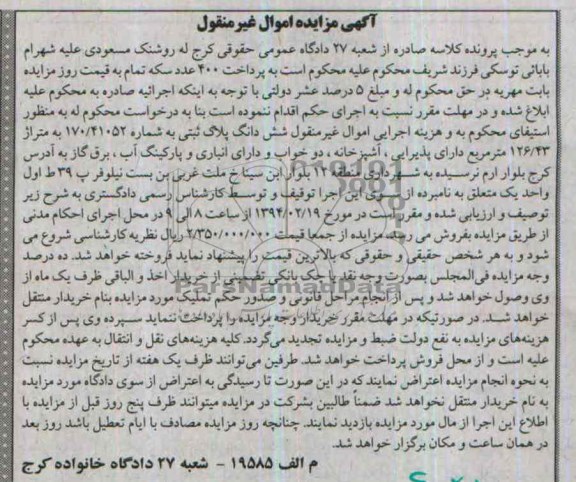 آگهی مزایده اموال غیرمنقول
به موجب پرونده کلاسه صادره از شعبه ۲۷ دادگاه عمومی حقوقی کرج له روشنک مسعودی علیه شهرام
بابائی توسکی فرزند شریف محکوم علیه محکوم است به پرداخت ۴۰۰ عدد سکه تمام به قیمت روز مزایده
بابت مهریه در حق محکوم له و مبلغ ۵ درصد عشر دولتی با توجه به اینکه اجرائیه صادره به محکوم علیه
ابلاغ شده و در مهلت مقرر نسبت به اجرای حکم اقدام ننموده است بنا به درخواست محکوم له به منظور
استیفای محکوم به و هزینه اجرایی اموال غیرمنقول شش دانگ پلاک ثبتی به شماره ۱۷۰/۴۱۰۵۲ به متراژ
۱۲۶/۴۳ مترمربع دارای پذیرایی، آشپزخانه، دو خواب و دارای انباری و پارکینگ آب، برق گاز به آدرس
کرج بلوار ارم نرسیده به شهرداری منطقه ۱۲ بلوار ابن سینا خ ملت غربی بن بست نیلوفر پ ۳۹ ط اول
واحد یک متعلق به نامبرده از سوی این اجرا توقیف و توسط کارشناس رسمی دادگستری به شرح زیر
توصیف و ارزیابی شده و مقرر است در مورخ ۱۳۹۴/۰۲/۱۹ از ساعت ۸ الی ۹ در محل اجرای احکام مدنی
از طریق مزایده بفروش می رسد. مزایده از جمعا قیمت ۲/۳۵۰/۰۰۰/۰۰۰ ریال نظریه کارشناسی شروع می
شود و به هر شخص حقیقی و حقوقی که بالاترین قیمت را پیشنهاد نماید فروخته خواهد شد. ده درصد
وجه مزایده فی المجلس بصورت وجه نقد یا چک بانکی تضمینی از خریدار اخذ و الباقی ظرف یک ماه از
وی وصول خواهد شد و پس از انجام مراحل قانونی و صدور حکم تملیک مورد مزایده بنام خریدار منتقل
خواهد شد. در صورتیکه در مهلت مقرر خریدار وجه مزایده را پرداخت ننماید سپرده وی پس از کسر
هزینه‌های مزایده به نفع دولت ضبط و مزایده تجدید می‌گردد. کلیه هزینه‌های نقل و انتقال به عهده محکوم
علیه است و از محل فروش پرداخت خواهد شد. طرفین می‌توانند ظرف یک هفته از تاریخ مزایده نسبت
به نحوه انجام مزایده اعتراض نمایند که در این صورت تا رسیدگی به اعتراض از سوی دادگاه مورد مزایده
به نام خریدار منتقل نخواهد شد ضمناً طالبین بشرکت در مزایده میتوانند ظرف پنج روز قبل از مزایده با
اطلاع این اجرا از مال مورد مزایده بازدید نمایند. چنانچه روز مزایده مصادف با ایام تعطیل باشد روز بعد
در همان ساعت و مکان برگزار خواهد شد.
م الف ۱۹۵۸۵ - شعبه ۲۷ دادگاه خانواده کرج
ParsNamadData